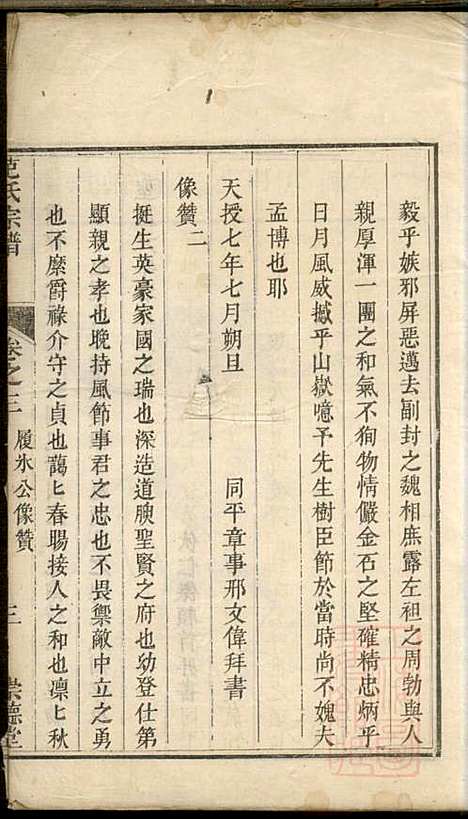 毅乎嫉邪屏惡邁去副封之魏相庶露左袒之周勃與人
親厚渾一團之和氣不狥物情儼金石之堅確精忠炳乎
日月風威撼乎山嶽噫予先生樹臣節於當時尚不媿夫
孟博也耶
天授七年七月朔旦 同平章事邢文偉拜書
像贊二
挺生英豪家國之瑞也深造道腴聖賢之府也幼登仕第
顯親之孝也晚持風節事君之忠也不畏禦敵中立之勇
也不縻爵祿介守之貞也藹匕春暘接人之和也凛匕秋
范氏宗譜 卷之三 履氷公像贊 三 崇德堂